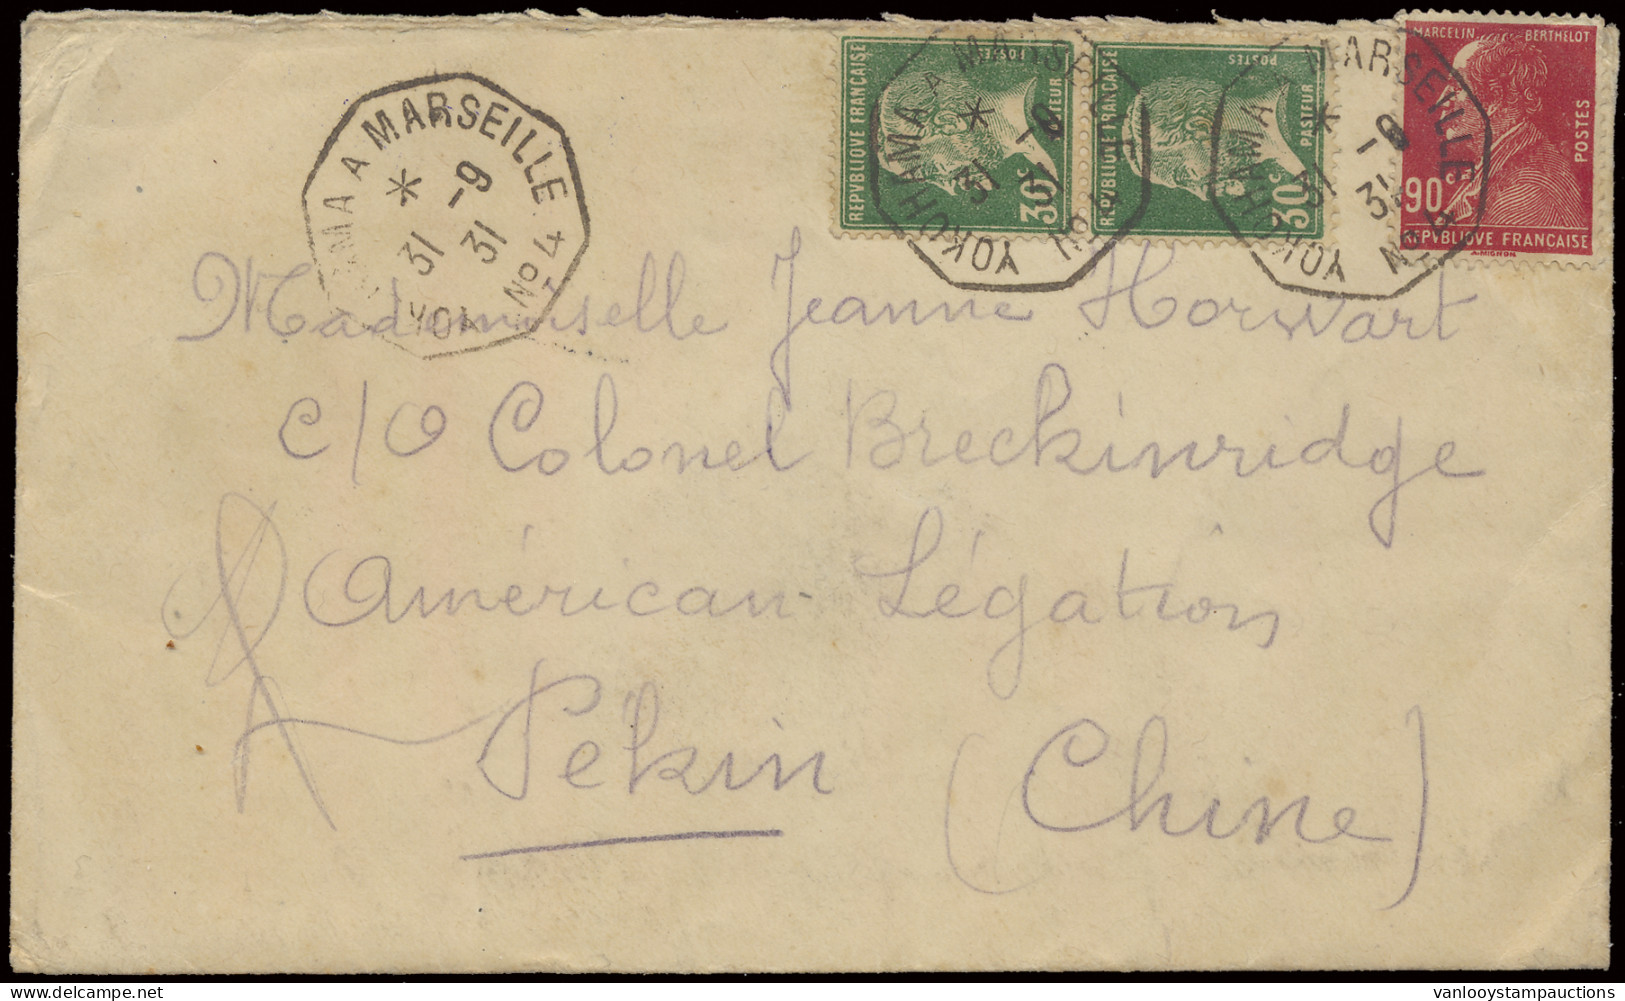 YOKOHAMA A MARSEILLE No 4
* -9
31 31
REPVBLIQVE FRANÇAISE
POSTES
PASTEUR
30c
YOKOHAMA A MARSEILLE No 4
* -9
31 31
REPVBLIQVE FRANÇAISE
POSTES
PASTEUR
30c
YOKOHAMA A MARSEILLE No 4
* -9
31 31
MARCELIN BERTHELOT
POSTES
90c
REPVBLIQVE FRANÇAISE
A. MIGNON
Mademoiselle Jeanne Horwart
c/o Colonel Breckinridge
Américan Légation
Pékin (Chine)
vanlooystampauctions